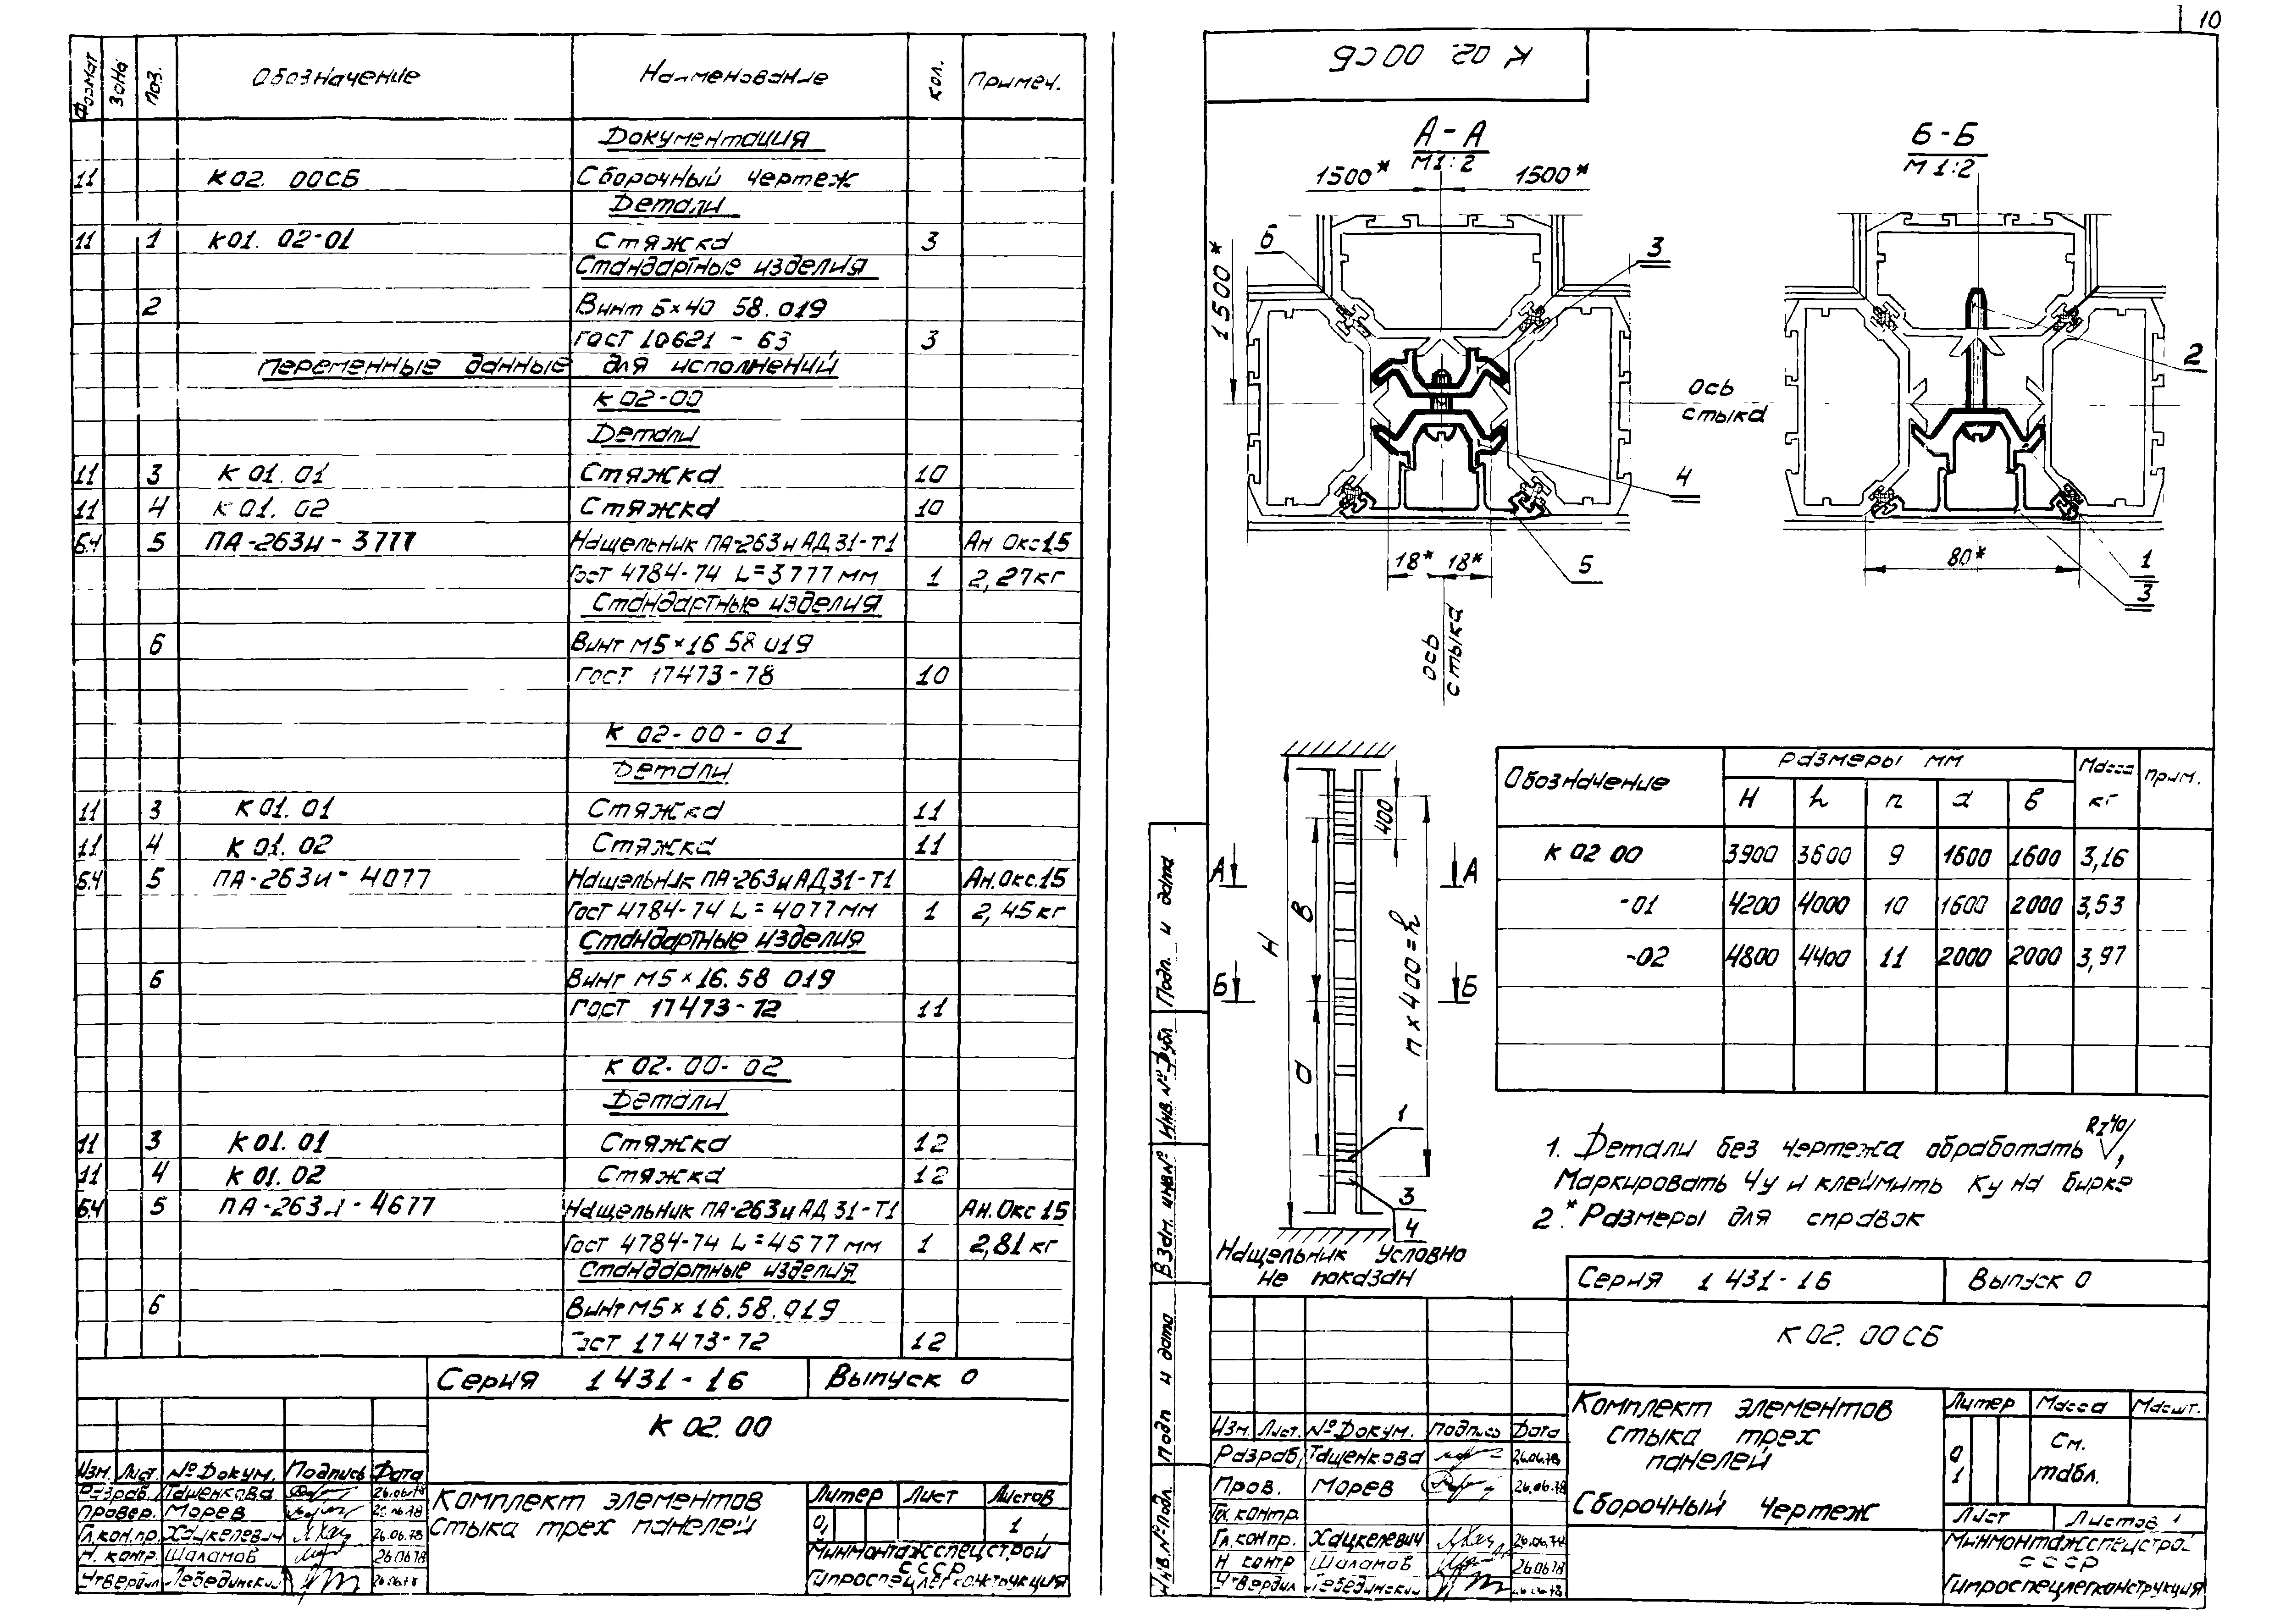 10
Формат Зона Поз. Обозначение Наименование Кол. Примеч.
Документация
11 К 02. 00СБ Сборочный чертеж
Детали
11 1 К01. 02-01 Стяжка 3
Стандартные изделия
2 Винт 6×40 58.019
гост 10621 - 63 3
Переменные данные для исполнений
К 02-00
Детали
11 3 К 01. 01 Стяжка 10
11 4 К 01. 02 Стяжка 10
Б.4 5 ПА-263и-3777 Нащельник ПА-263и АД31-Т1 Ан Окс 15
Гост 4784-74 L=3777 мм 1 2,27кг
Стандартные изделия
6 Винт М5×16 58 019
гост 17473-78 10
К 02-00-01
Детали
11 3 К 01. 01 Стяжка 11
11 4 К 01. 02 Стяжка 11
Б.4 5 ПА-263и-4077 Нащельник ПА-263и АД31-Т1 Ан.Окс.15
Гост 4784-74 L=4077 мм 1 2,45кг
Стандартные изделия
6 Винт М5×16.58 019
Гост 17473-72 11
К 02-00-02
Детали
11 3 К 01. 01 Стяжка 12
11 4 К 01. 02 Стяжка 12
Б.4 5 ПА-263и-4677 Нащельник ПА-263и АД31-Т1 Ан.Окс 15
Гост 4784-74 L=4677 мм 1 2,81 кг
Стандартные изделия
6 Винт М5×16.58.019
Гост 17473-72 12
Серия 1 431-16 Выпуск 0
К 02. 00
Изм. Лист. № Докум. Подпись Дата
Разраб. Ташенкова 26.06.78
Провер. Морев 26.06.78
Гл.кон.пр. Хацкелевич 26.06.78
Н. контр. Шаламов 26.06.78
Утвердил Лебединский 26.06.78
Комплект элементов
стыка трех панелей
Литер Лист Листов
0, 1
Минмонтажспецстрой
СССР
Гипроспецлегконструкция
К 02. 00СБ
А-А
М1:2
1500* 1500*
Б-Б
М 1:2
6 3
1500*
2
ось
стыка
4
18* 18* 5
80* 1
3
ось
стыка
400
А А
в
Н
n×400=h
Б Б
а
1
3
4
Нащельник условно
не показан
Обозначение Размеры мм Масса кг Прим.
H h n а в
К 02 00 3900 3600 9 1600 1600 3,16
-01 4200 4000 10 1600 2000 3,53
-02 4800 4400 11 2000 2000 3,97
1. Детали без чертежа обработать Rz40/,
Маркировать Чу и клеймить Ку на бирке
2.* Размеры для справок
Подп. и дата
Инв. № дубл
Взам. инв №
Подп и дата
Инв. № подл.
Серия 1 431-16 Выпуск 0
К 02. 00СБ
Изм. Лист. № Докум. подпись Дата
Разраб. Ташенкова 26.06.78
Пров. Морев 26.06.78
Тех. контр.
Гл. кон пр. Хацкелевич 26.06.78
Н контр Шаламов 26.06.78
Утвердил Лебединский 26.06.78
Комплект элементов
стыка трех
панелей
Сборочный чертеж
Литер Масса Масшт.
0 См.
1 табл.
Лист Листов 1
Минмонтажспецстрой
СССР
Гипроспецлегконструкция